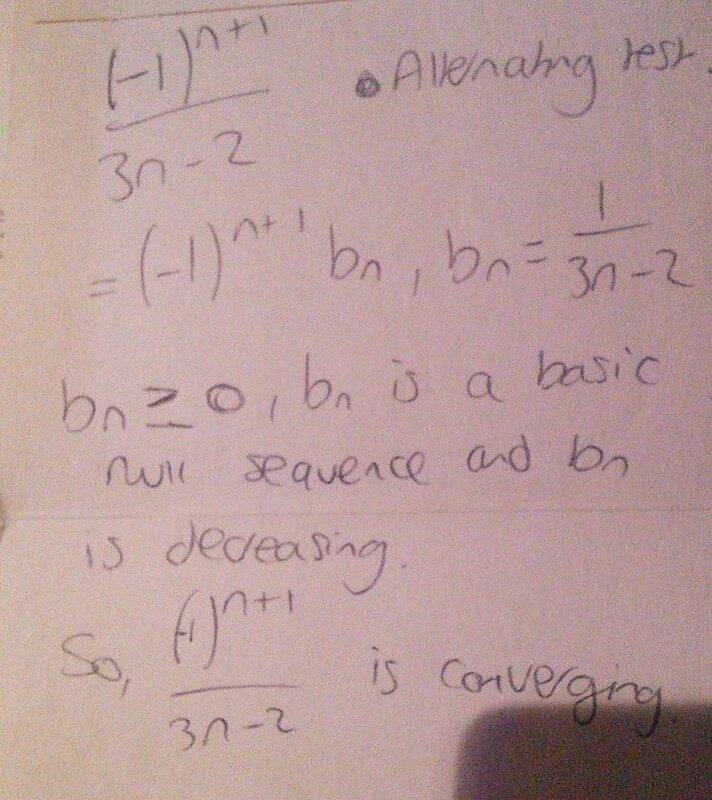 (-1)^{n+1} / 3n-2 • Alternating test.
= (-1)^{n+1} bn, bn = 1 / 3n-2
bn ≥ 0, bn is a basic
null sequence and bn
is decreasing.
So, (-1)^{n+1} / 3n-2 is converging.